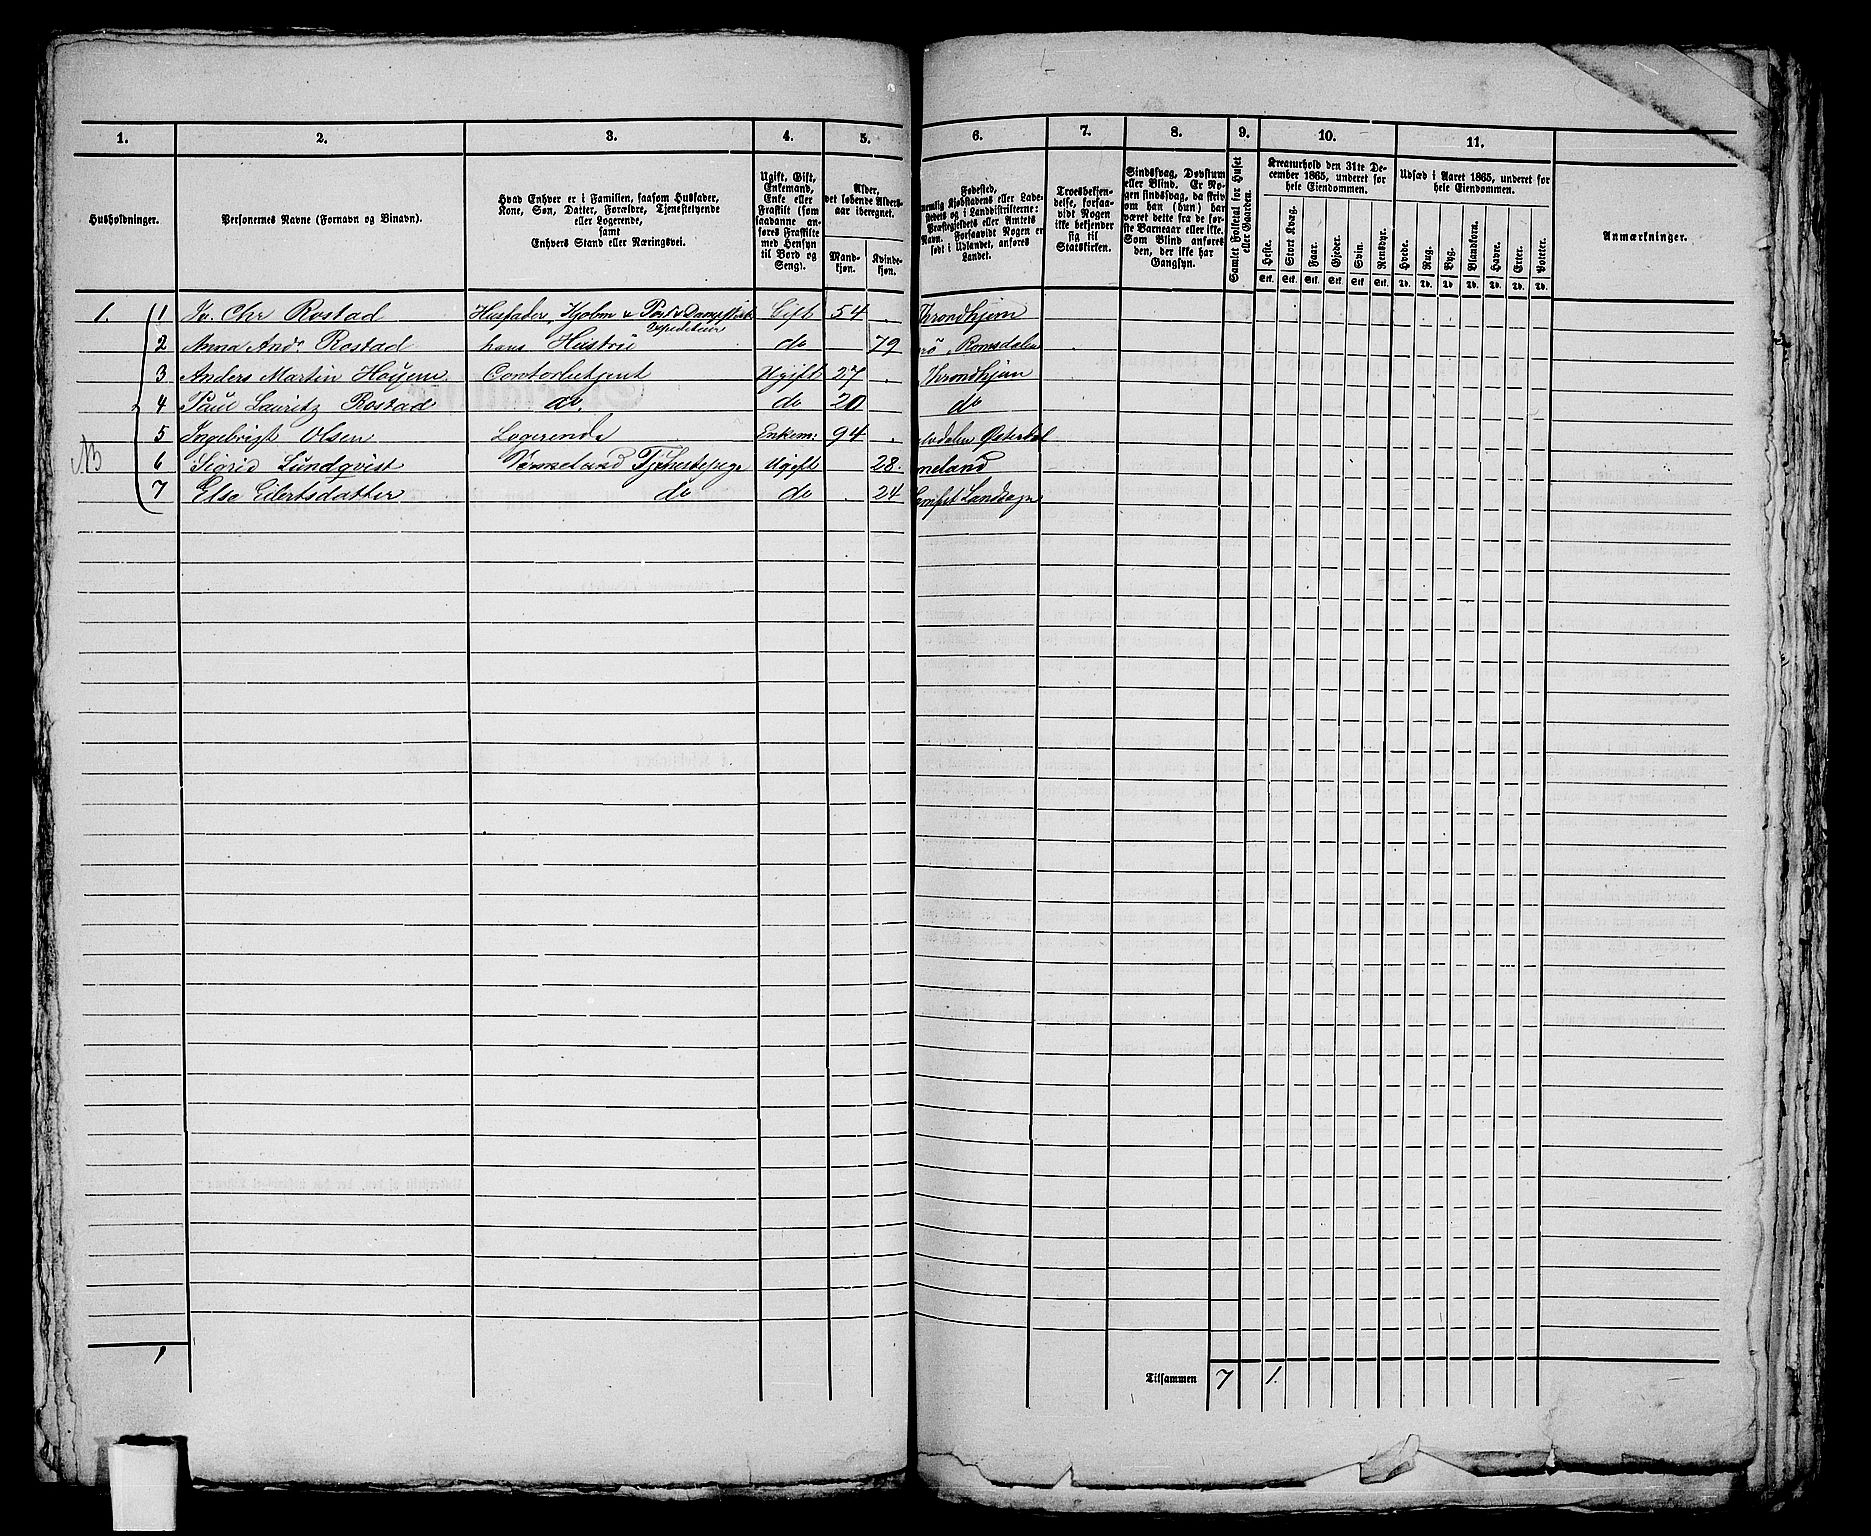 1. 2. 3. 4. 5. 6. 7. 8. 9. 10. 11.
Husholdninger.
Personernes Navne (Fornavn og Binavn).
Hvad Enhver er i Familien, saasom Husfader,
Kone, Søn, Datter, Forældre, Tjenestetyende
eller Logerende,
samt
Enhvers Stand eller Næringsvei.
Ugift, Gift,
Enkemand,
Enke eller
Fraskilt (som
saadanne an-
føres Fraskilte
med Hensyn
til Bord og
Seng).
Alder,
det løbende Alders-
aar iberegnet.
Mand-
kjøn.
Kvinde-
kjøn.
Fødested,
nemlig Kjøbstadens eller Lade-
stedets og i Landdistrikterne:
Præstegjeldets eller Amtets
Navn. Forsaavidt Nogen er
født i Udlandet, anføres
Landet.
Troesbekjen-
delse, forsaa-
vidt Nogen
ikke bekjender
sig til
Statskirken.
Sindssvag, Døvstum
eller Blind. Er No-
gen sindssvag, da skriv
om han (hun) har
været dette fra de før-
ste Barneaar eller ikke.
Som Blind anføres
den, der ikke har
Gangsyn.
Samlet Folketal for Huset
eller Gaarden.
Kreaturhold den 31te De-
cember 1865, underet for
hele Eiendommen.
Heste. Stort Kvæg. Faar. Gjeder. Svin. Rensdyr.
Stk. Stk. Stk. Stk. Stk. Stk.
Udsæd i Aaret 1865, underet for
hele Eiendommen.
Hvede. Rug. Byg. Blandkorn. Havre. Erter. Poteter.
Td. Td. Td. Td. Td. Td. Td.
Anmærkninger.
1. 1 Chr Rostad Husfader Kjøbm & Post & Dampskibs Gift 54 Throndhjem
Expediteur
2 Anna And. Rostad hans Hustru do 79 Romsdalen
3 Anders Martin Høyem Contorbetjent Ugift 27 Throndhjem
4 Paul Lauritz Rostad do. do 20 do
5 Ingebrigt Olsen Logerende Enkem: 94 Østerdal
NB 6 Sigrid Lundqvist Ugift 28.
7 Else Eilertsdatter do do 24 Landsogn
1
Tilsammen 7 1.